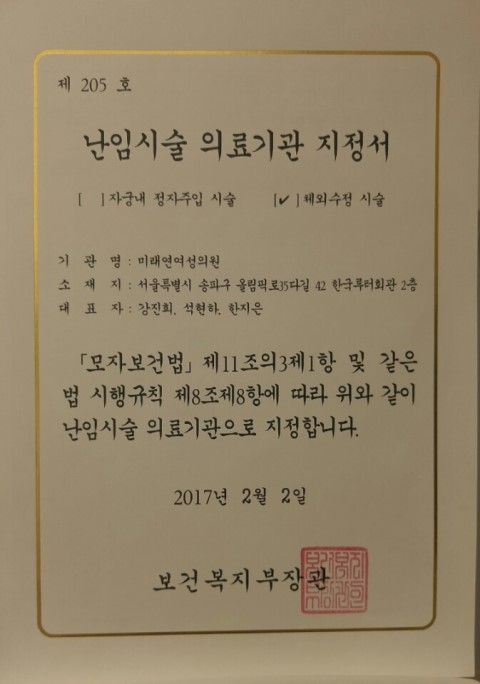 제 205 호
난임시술 의료기관 지정서
[ ]자궁내 정자주입 시술 [✔]체외수정 시술
기 관 명 : 미래연여성의원
소 재 지 : 서울특별시 송파구 올림픽로35다길 42 한국루터회관 2층
대 표 자 : 강진희, 석현하, 한지은
「모자보건법」 제11조의3제1항 및 같은
법 시행규칙 제8조제8항에 따라 위와 같이
난임시술 의료기관으로 지정합니다.
2017년 2월 2일
보건복지부장관